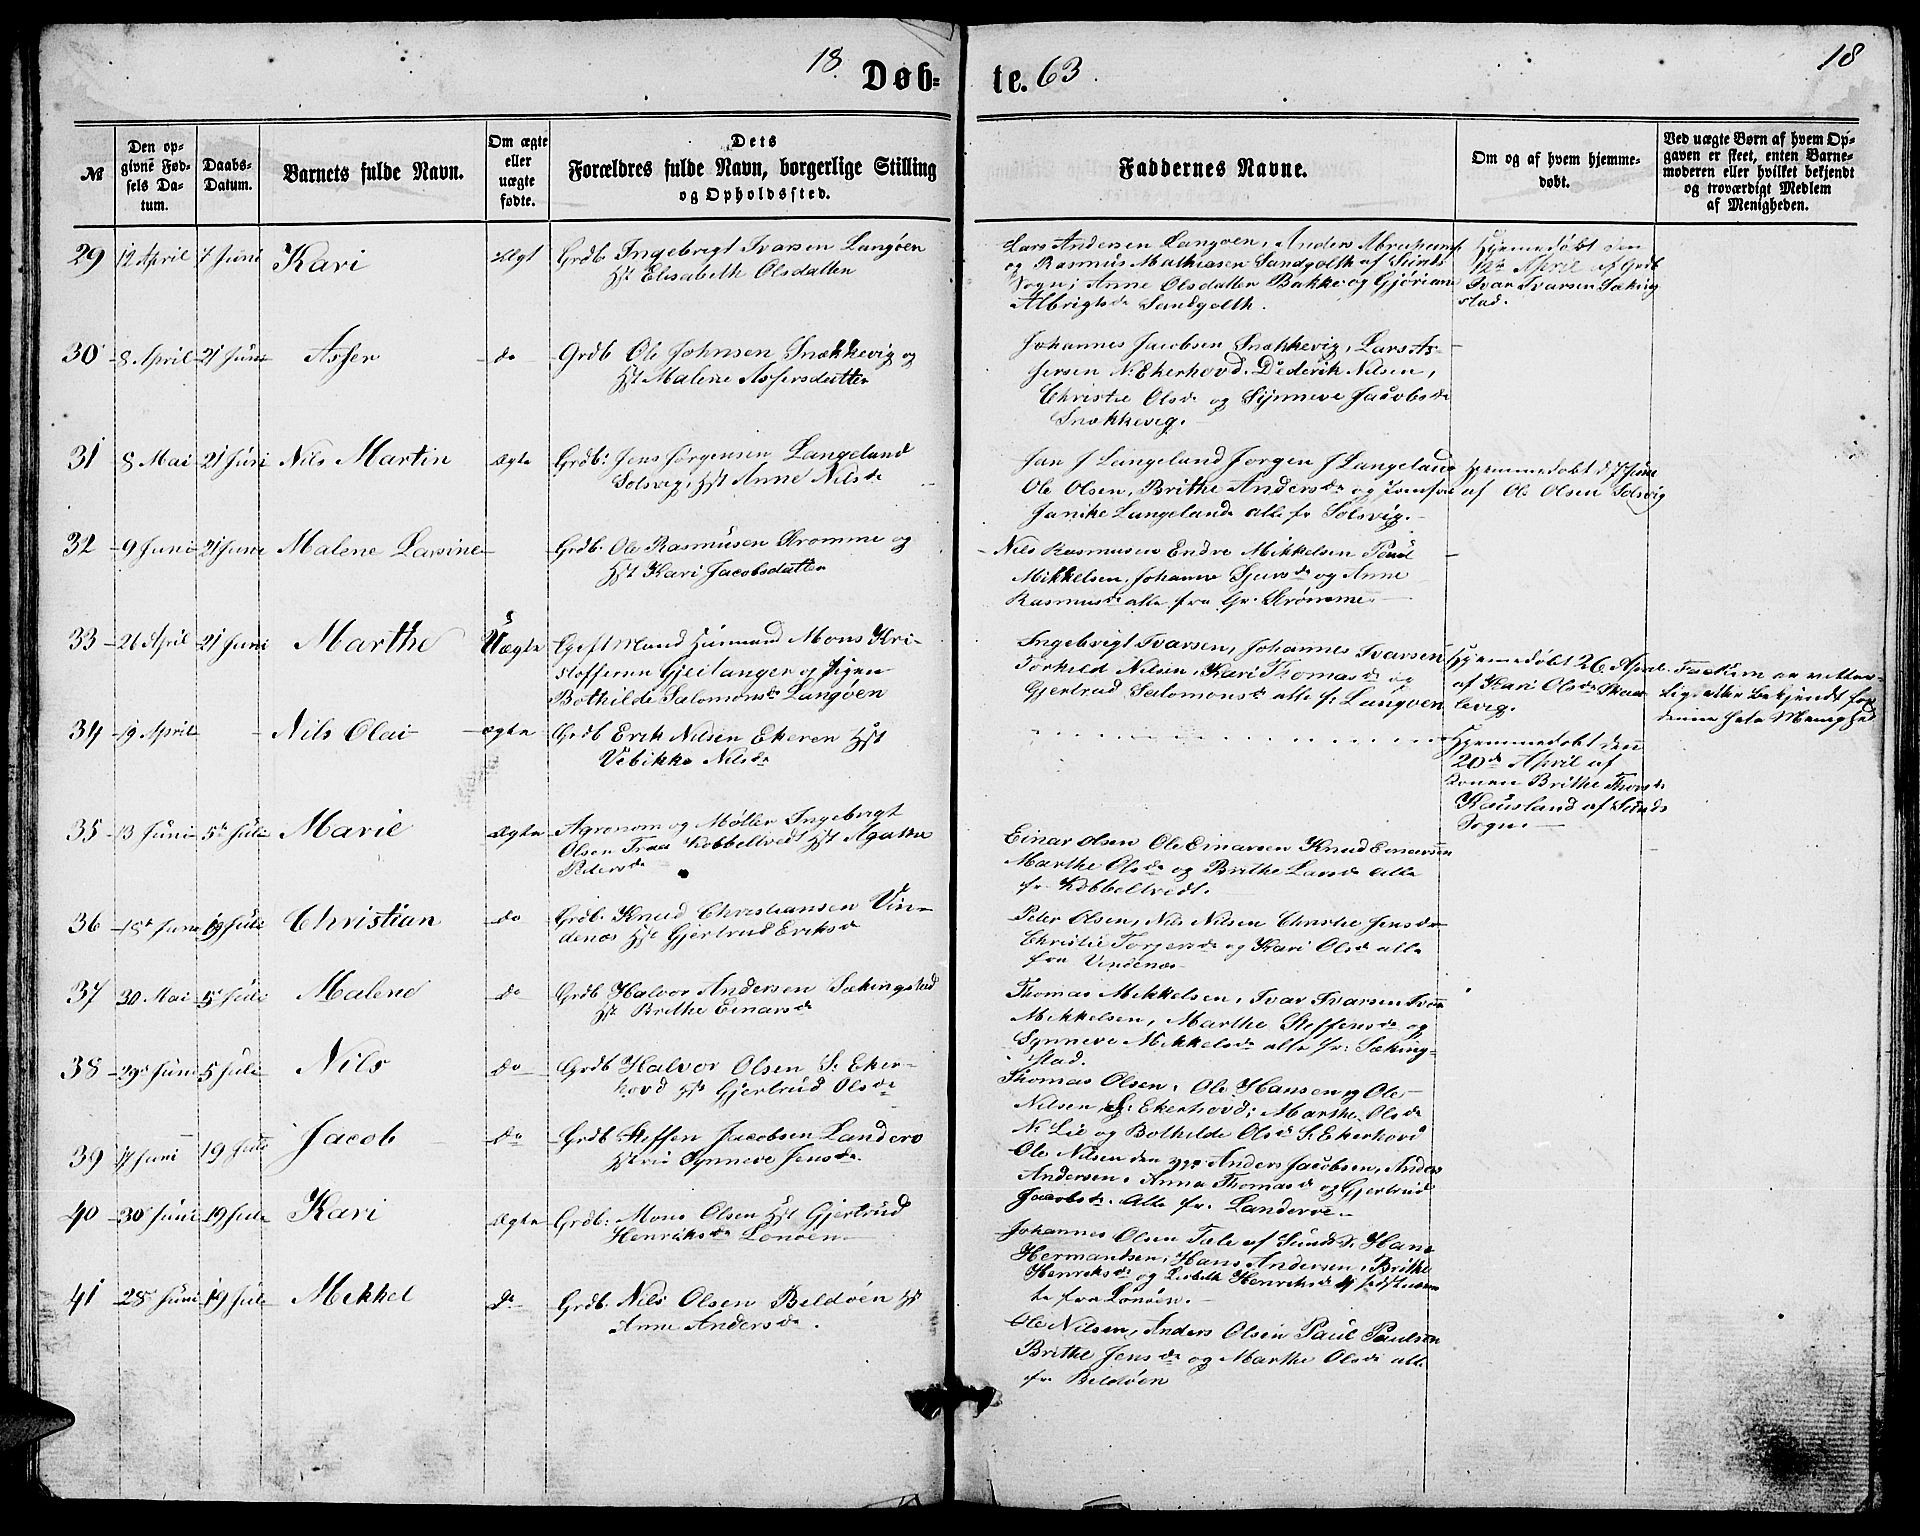 18
Døb-
te.
63.
18
№
Den op-
givne Fød-
sels Da-
tum.
Daabs-
Datum.
Barnets fulde Navn.
Om ægte
eller
uægte
fødte.
Dets
Forældres fulde Navn, borgerlige Stilling
og Opholdssted.
Faddernes Navne.
Om og af hvem hjemme-
døbt.
Ved uægte Børn af hvem Op-
gaven er skeet, enten Barne-
moderen eller hvilket bekjendt
og troværdigt Medlem
af Menigheden.
29 12 April 7 Juni Kari Ægt Grdb Ingebrigt Ivarsen Langöen
Hst Elisabeth Olsdatter
Lars Andersen Langöen, Anders
og Rasmus Mathiasen Sandgolth af Sunds
Sogn; Anne Olsdatter Bakke og Gjöriane
Albrigtsdr Sandgolth.
Hjemmedöbt den
12te April af Grdb
Ivar Ivarsen Sæking
stad.
30 8 April 21 Juni Asser do Grdb Ole Johnsen Snekkevig og
Hst Malene Assersdatter
Johannes Jacobsen Snekkevig, Lars As-
sersen N. Ekerhovd. Diderik Nilsen,
Christie Olsdr og Synneve Jacobsdr
Snekkevig.
31 8 Mai 21 Juni Nils Martin ægte Grdb: Jens Jörgensen Langeland
Solsvig, Hst Anne Nilsdr
Jan J Langeland Jörgen J Langeland
Ole Olsen, Brithe Andersdr og Jomfru
Janike Langeland alle fr Solsvig.
Hjemmedöbt d 7 Juni
af Ole Olsen Solsvig
32 9 Juni 21 Juni Malene Larsine Grdb. Ole Rasmusen Strömme og
Hst Kari Jacobsdatter
Nils Rasmusen Endre Mikkelsen Poul
Mikkelsen, Johanne Sjursdr og Anne
Rasmusdr alle fra Gr. Strömme.
33 26 April 21 Juni Marthe Uægte Gift Mand Huusmand Mons Kri-
stoffersen Gjeitanger og Pigen
Bothilde Salomonsdr Langöen
Ingebrigt Ivarsen, Johannes Ivarsen
Torkild Nilsen, Kari Thomasdr og
Gjertrud Salomonsdr alle fr Langöen
Hjemmedöbt 26 April
af Kari Olsdr Skaa
levig.
Factum er vitter-
lig eller bekjendt for
denne hele Menighed
34 19 April Nils Olai ægte Grdb Erik Nilsen Ekeren Hst
Vibikke Nilsdr
Hjemmedöbt den
20de April af
Konen Brithe Thorsdr
Kausland af Sunds
Sogn
35 13 Juni 5te Juli Marie Ægte Agronom og Møller Ingebrigt
Olsen Traa Kobbeltvedt Hst Agatha
Pedersdr
Einar Olsen Ole Einarsen Knud Einarsen
Marthe Olsdr og Brithe Larsdr alle
fr Kobbeltvedt.
36 18d Juni 19 Juli Christian do Grdb. Knud Christiansen Vin-
denes Hst Gjertrud Eriksdr
Peter Olsen, Nils Nilsen Christie Jensdr
Christie Torgersdr og Kari Olsdr alle
fra Vindenes
37 30 Mai 5te Juli Malene do Grdb Halvor Andersen Sækingstad
Hst Brithe Einarsdr
Thomas Mikkelsen, Ivar Ivarsen Iver
Mikkelsen, Marthe Steffensdr og
Synneve Mikkelsdr alle fr. Sæking-
stad.
38 29d Juni 5 Juli Nils do Grdb Halvor Olsen S. Eker-
hovd Hst Gjertrud Olsdr
Thomas Olsen, Ole Hansen og Ole
Nilsen S. Ekerhovd; Marthe Olsdr
N. Lie og Bothilde Olsdr S. Ekerhovd
39 17 Juni 19 Juli Jacob do Grdb Steffen Jacobsen Landerö
Hstru Synneve Jensdr
Ole Nilsen den yngr Anders Jacobsen, Anders
Andersen, Anna Thomasdr og Gjertrud
Jacobsdr. Alle fr. Landeröe.
40 30 Juni 19 Juli Kari Ægte Grdb: Mons Olsen Hst Gjertrud
Henriksdr Lönöen
Johannes Olsen Tæle af Sund S. Hans
Hermandsen, Hans Andersen, Brithe
Henriksdr og Lisbeth Henriksdr 4 sidstnævn
te fra Lönöen.
41 28 Juni 19 Juli Mikkel do Grdb. Nils Olsen Beldöen Hst
Anne Andersdr.
Ole Nilsen, Anders Olsen Paul Paulsen
Brithe Jensdr og Marthe Olsdr alle
fr Beldöen